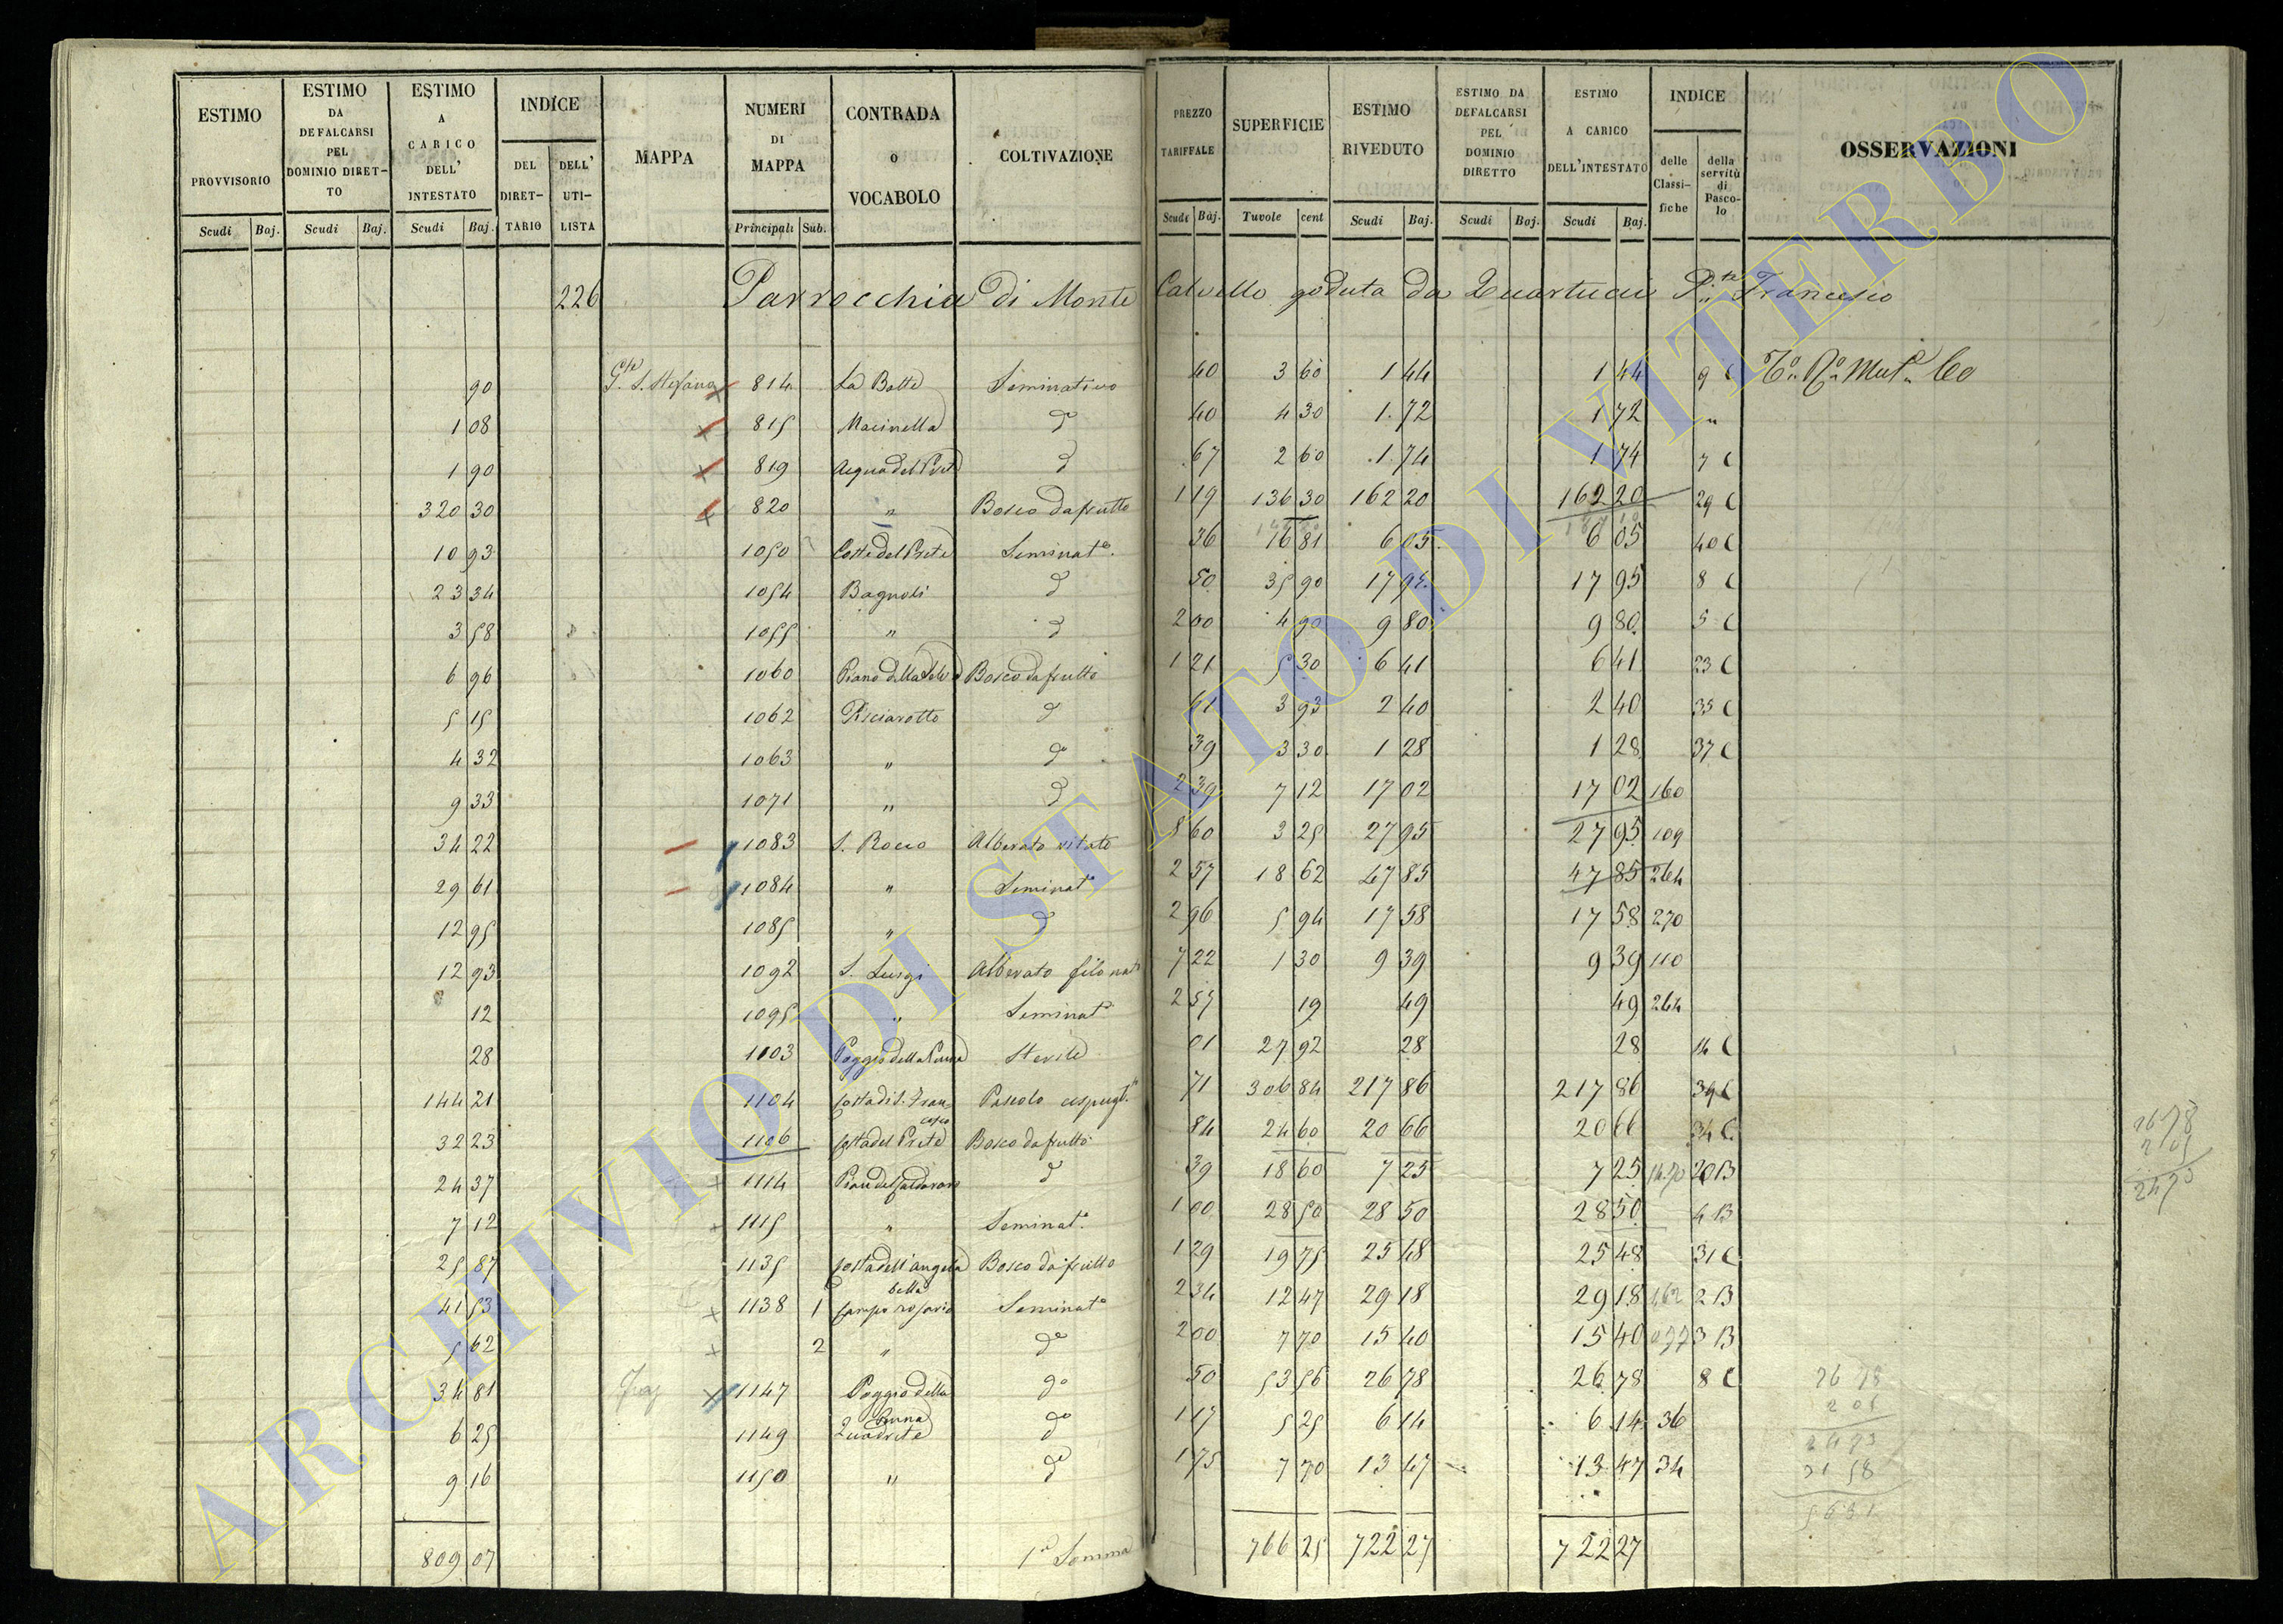 ESTIMO PROVVISORIO | ESTIMO DA DEFALCARSI PEL DOMINIO DIRETTO | ESTIMO A CARICO DELL' INTESTATO | INDICE DEL DIRETTARIO | DELL' UTILISTA | MAPPA | NUMERI DI MAPPA | CONTRADA O VOCABOLO | COLTIVAZIONE | PREZZO TARIFFALE | SUPERFICIE | ESTIMO RIVEDUTO | ESTIMO DA DEFALCARSI PEL DOMINIO DIRETTO | ESTIMO A CARICO DELL'INTESTATO | INDICE delle Classifiche | della servitù di Pascolo | OSSERVAZIONI
Scudi Baj. | Scudi Baj. | Scudi Baj. | Principali Sub. | Scudi Baj. | Tavole cent | Scudi Baj. | Scudi Baj. | Scudi Baj.
226 Parrocchia di Monte Calvello goduta da Quartucci Francesco
90 | S. Stefano | 814 | La Botte | Seminativo | 40 | 3 60 | 1 44 | 1 44 | 9 C
1 08 | 815 | Macinella | d | 40 | 4 30 | 1 72 | 1 72 | "
1 90 | 819 | Acqua del Prete | d | 67 | 2 60 | 1 74 | 1 74 | 7 C
320 30 | 820 | " | Bosco da frutto | 1 19 | 136 30 | 162 20 | 162 20 | 29 C
10 93 | 1050 | Costa del Prete | Seminat.º | 36 | 16 81 | 6 05 | 6 05 | 40 C
23 34 | 1054 | Bagnoli | d | 50 | 35 90 | 17 95 | 17 95 | 8 C
3 58 | 1055 | " | d | 2 00 | 4 90 | 9 80 | 9 80 | 5 C
6 96 | 1060 | Piano della | Bosco da frutto | 1 21 | 5 30 | 6 41 | 6 41 | 23 C
5 15 | 1062 | Pisciarotto | d | 61 | 3 93 | 2 40 | 2 40 | 35 C
4 32 | 1063 | " | dº | 39 | 3 30 | 1 28 | 1 28 | 37 C
9 33 | 1071 | " | d | 2 39 | 7 12 | 17 02 | 17 02 | 160
34 22 | 1083 | S. Rocco | Alberato vitato | 8 60 | 3 25 | 27 95 | 27 95 | 109
29 61 | 1084 | " | Seminat.º | 2 57 | 18 62 | 47 85 | 47 85 | 264
12 95 | 1085 | " | d | 2 96 | 5 94 | 17 58 | 17 58 | 270
12 93 | 1092 | S. Luigi | Alberato filonato | 7 22 | 1 30 | 9 39 | 9 39 | 110
12 | 1095 | " | Seminatº | 2 57 | 19 | 49 | 49 | 264
28 | 1103 | Poggio della Penna | Sterile | 01 | 27 92 | 28 | 28 | 14 C
144 21 | 1104 | Costa di S. Francesco | Pascolo cespugl.º | 71 | 306 84 | 217 86 | 217 86 | 39 C
32 23 | 1106 | Costa del Prete | Bosco da frutto | 84 | 24 60 | 20 66 | 20 66 | 34 C
24 37 | 1114 | d | 39 | 18 60 | 7 25 | 7 25 | 20 B
7 12 | 1115 | " | Seminat.º | 1 00 | 28 50 | 28 50 | 28 50 | 4 B
25 87 | 1135 | Costa dell'angela | Bosco da frutto | 1 29 | 19 75 | 25 48 | 25 48 | 31 C
41 53 | 1138 | 1 | Campo della rosaria | Seminatº | 2 34 | 12 47 | 29 18 | 29 18 | 2 B
5 62 | 2 | " | dº | 2 00 | 7 70 | 15 40 | 15 40 | 3 B
34 81 | 1147 | Poggio della Penna | dº | 50 | 53 56 | 26 78 | 26 78 | 8 C
6 25 | 1149 | dº | 1 17 | 5 25 | 6 14 | 6 14 | 36
9 16 | 1150 | " | dº | 1 75 | 7 70 | 13 47 | 13 47 | 34
809 07 | 1ª Somma | 766 25 | 722 27 | 722 27
ARCHIVIO DI STATO DI VITERBO